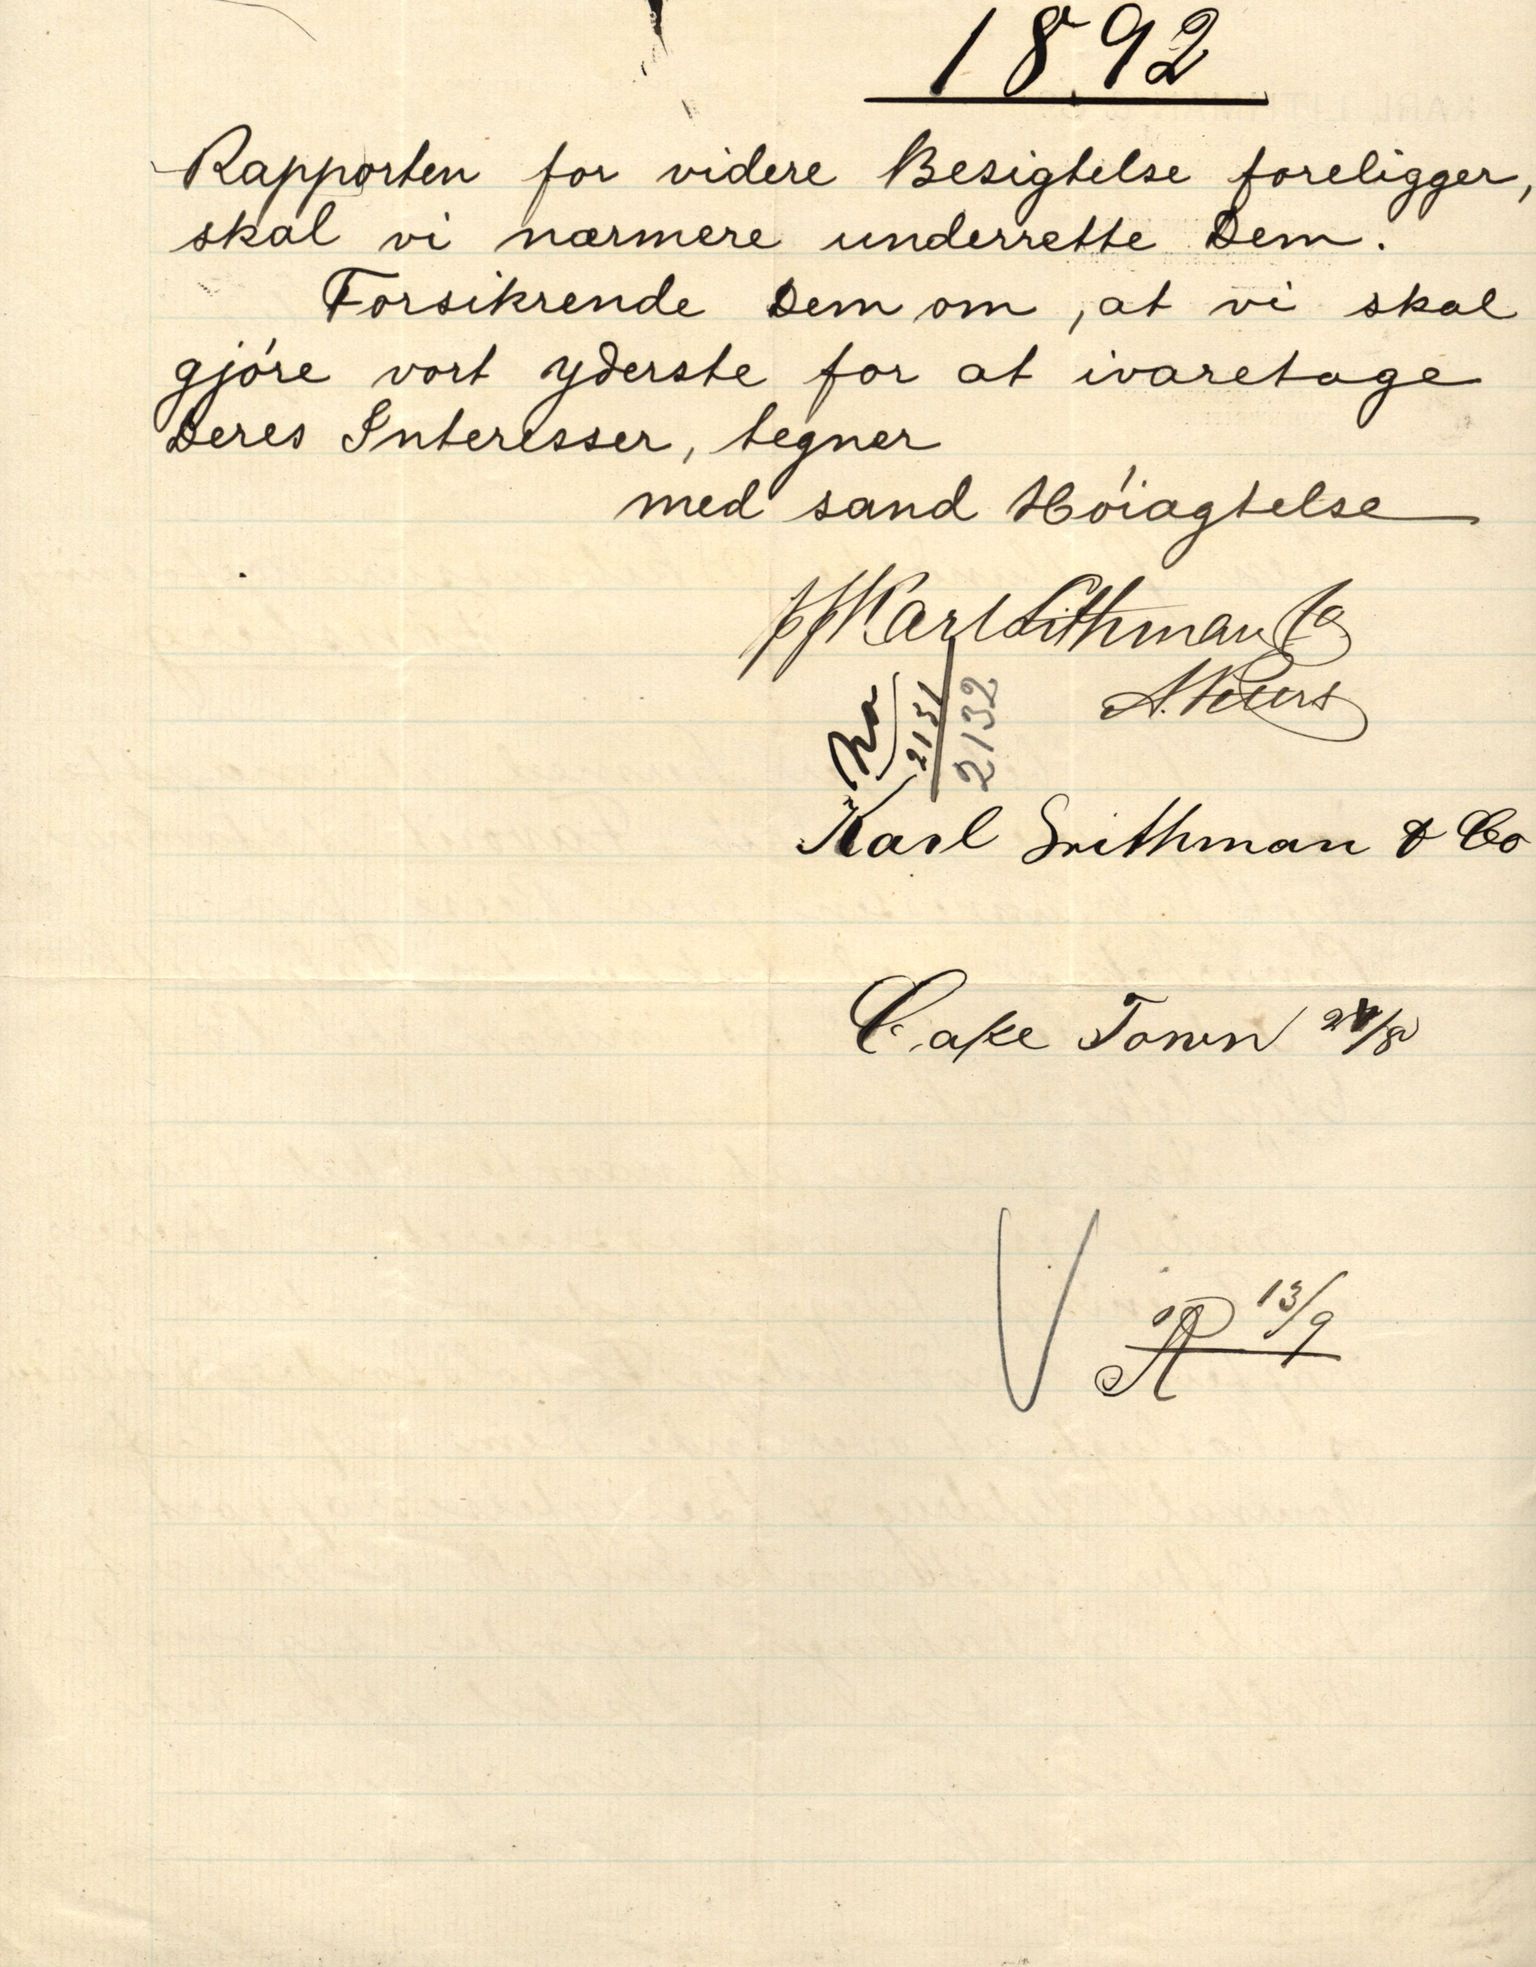 1892
Rapporten for videre Besigtelse foreligger,
skal vi nærmere underrette Dem.
Forsikrende Dem om, at vi skal
gjóre vort yderste for at ivaretage
Deres Interesser, tegner
med sand Hóiagtelse
pp Karl Lithman Co
No
2131
2132
Karl Lrithman & Co
Cape Town
13/9